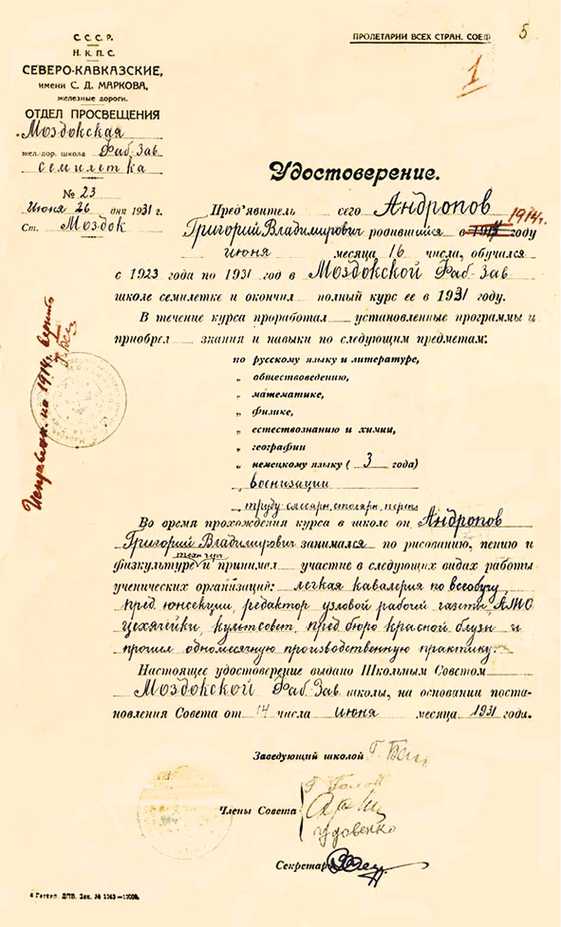 С. С. С. Р.
Н. К. П. С.
СЕВЕРО-КАВКАЗСКИЕ,
имени С. Д. МАРКОВА,
железные дороги.
ОТДЕЛ ПРОСВЕЩЕНИЯ
Моздокская
жел.-дор. школа Фаб-Зав
семилетка
№ 23
Июня 26 дня 1931 г.
Ст. Моздок
ПРОЛЕТАРИИ ВСЕХ СТРАН. СОЕД
5
1
Удостоверение.
Пред'явитель сего Андропов
1914г.
Григорий Владимирович родившийся в году
июня месяца 16 числа, обучался
с 1923 года по 1931 год в Моздокской Фаб-Зав
школе семилетке и окончил полный курс ее в 1931 году.
В течение курса проработал установленные программы и
приобрел знания и навыки по следующим предметам:
по русскому языку и литературе,
„ обществоведению,
„ математике,
„ физике,
„ естествознанию и химии,
„ географии
„ немецкому языку ( 3 года)
„ военизации
„ труду слесарн, столярн,
Исправлен. на 1914г. верить
Во время прохождения курса в школе он Андропов
Григорий Владимирович занимался по рисованию, пению и
физкультуре и принимал участие в следующих видах работы
ученических организаций: легкая кавалерия по всеобучу
пред. юнсекции, редактор узловой рабочей газеты, АМО
цехячейки, культсовет, пред бюро красной блузы и
прошел одномесячную производственную практику.
Настоящее удостоверение выдано Школьным Советом
Моздокской Фаб-Зав школы, на основании поста-
новления Совета от 14 числа июня месяца 1931 годи.
Заведующий школой
Члены Совета
Чудовенко
Секретарь